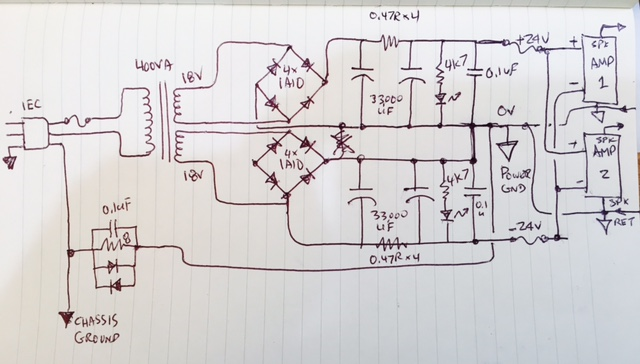 0.47R x 4
+24V
SPK
AMP
1
400VA
18V
4x
1A1D
4K7
0.1uF
33,000
uF
IEC
0V
+
-
POWER
GND
4x
1A1D
18V
4K7
0.1
u
33,000
uF
+
-
SPK
AMP
2
SPK
RET
-24V
0.47R x 4
0.1uF
8
CHASSIS
GROUND